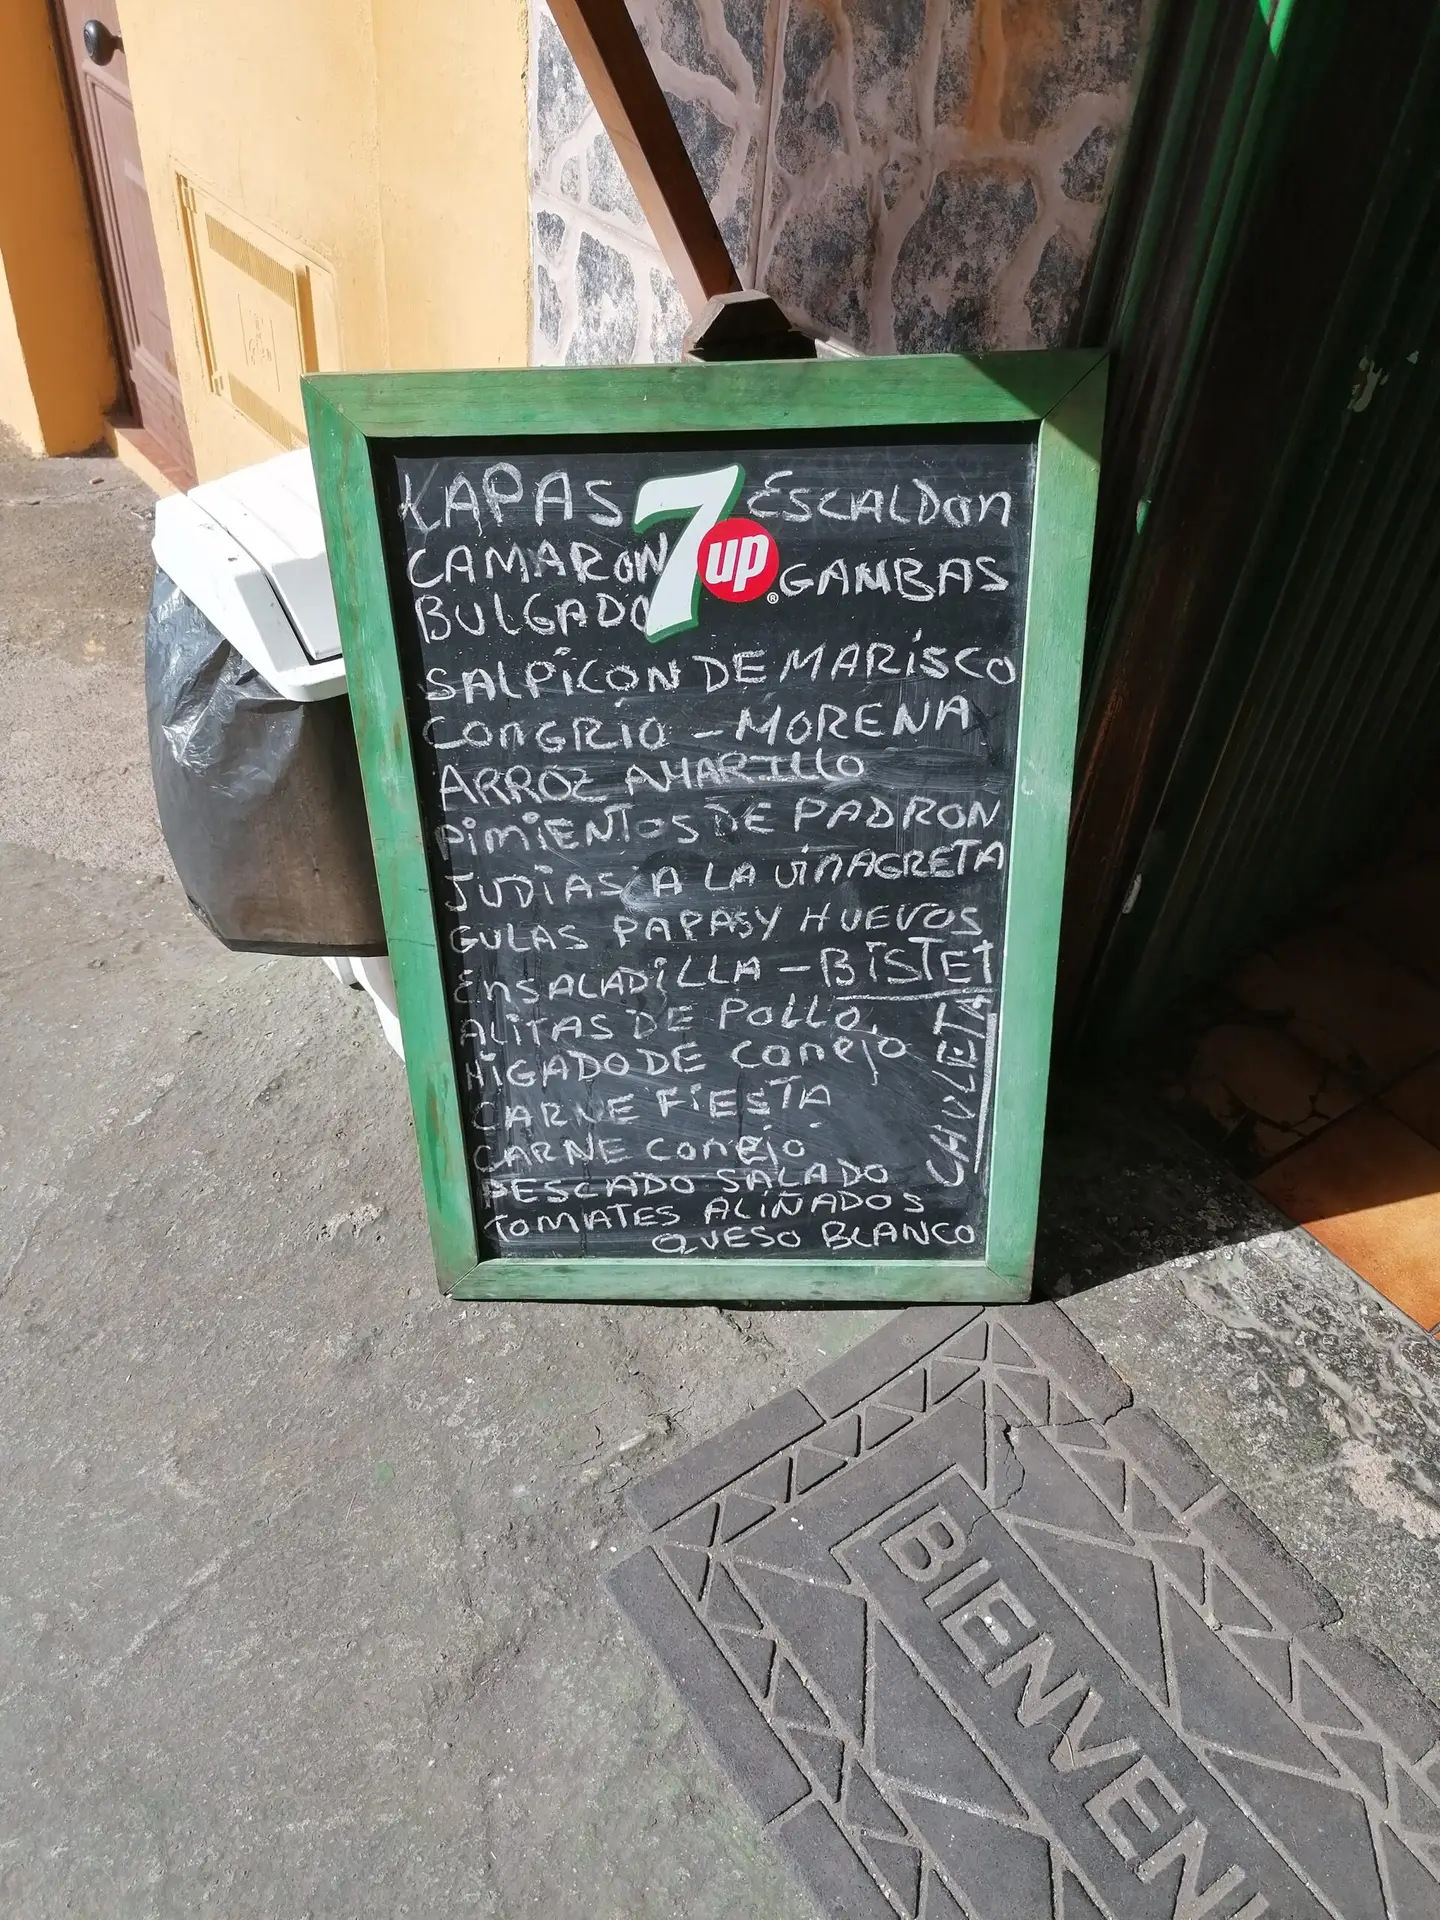 LAPAS 7up ESCALDON
CAMARON GAMBAS
BULGADO
SALPICON DE MARISCO
CONGRIO - MORENA
ARROZ AMARILLO
PIMIENTOS DE PADRON
JUDIAS A LA VINAGRETA
GULAS PAPAS Y HUEVOS
ENSALADILLA - BISTET
ALITAS DE POLLO
HIGADO DE CONEJO
CARNE FIESTA
CARNE CONEJO
PESCADO SALADO
TOMATES ALIÑADOS
QUESO BLANCO
CHULETA
BIENVENI